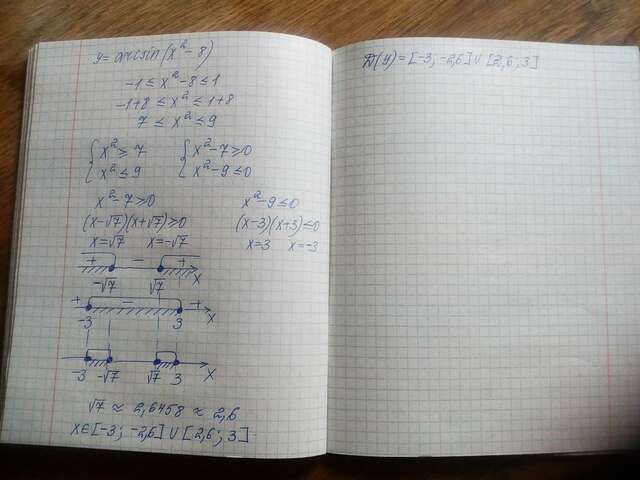 y = arcsin(x² - 8)
-1 ≤ x² - 8 ≤ 1
-1+8 ≤ x² ≤ 1+8
7 ≤ x² ≤ 9
{ x² ≥ 7 { x² - 7 ≥ 0
{ x² ≤ 9 { x² - 9 ≤ 0
x² - 7 ≥ 0 x² - 9 ≤ 0
(x-√7)(x+√7) ≥ 0 (x-3)(x+3) ≤ 0
x=√7 x=-√7 x=3 x=-3
+ - +
-√7 √7 x
+ - +
-3 3 x
-3 -√7 √7 3 x
√7 ≈ 2,6458 ≈ 2,6
x∈[-3; -2,6] ∪ [2,6; 3]
D(y) = [-3; -2,6] ∪ [2,6; 3]